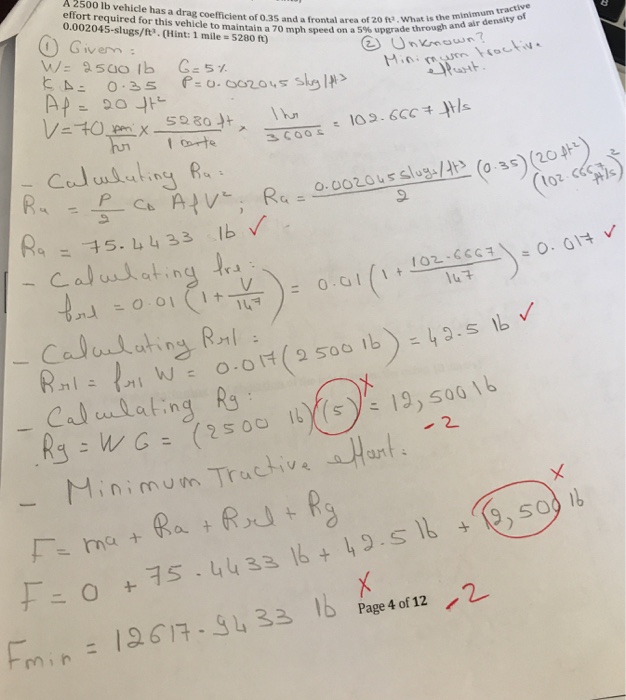 A 2500 lb vehicle has a drag coefficient of 0.35 and a frontal area of 20 ft². What is the minimum tractive
effort required for this vehicle to maintain a 70 mph speed on a 5% upgrade through and air density of
0.002045-slugs/ft³. (Hint: 1 mile = 5280 ft)
① Given :
② Unknown?
W = 2500 lb G = 5%
Minimum tractive
effort.
D = 0.35 ρ = 0.002045 slug/ft³
Af = 20 ft²
V = 70 mi/hr × 5280 ft / 1 × 1 hr / 3600 s = 102.6667 ft/s
- Calculating Ra :
Ra = ρ/2 CD Af V² ; Ra = 0.002045 slugs/ft³ / 2 (0.35) (20 ft²) (102.6667 ft/s)²
Ra = 75.4433 lb ✓
- Calculating frl :
frl = 0.01 (1 + V/147) = 0.01 (1 + 102.6667/147) = 0.017 ✓
- Calculating Rrl :
Rrl = frl W = 0.017 (2500 lb) = 42.5 lb ✓
- Calculating Rg : X
Rg = W G = (2500 lb) (5) = 12,500 lb
-2
- Minimum Tractive effort.
F = ma + Ra + Rrl + Rg X
F = 0 + 75.4433 lb + 42.5 lb + 12,500 lb
Fmin = 12617.9433 lb X
Page 4 of 12 -2